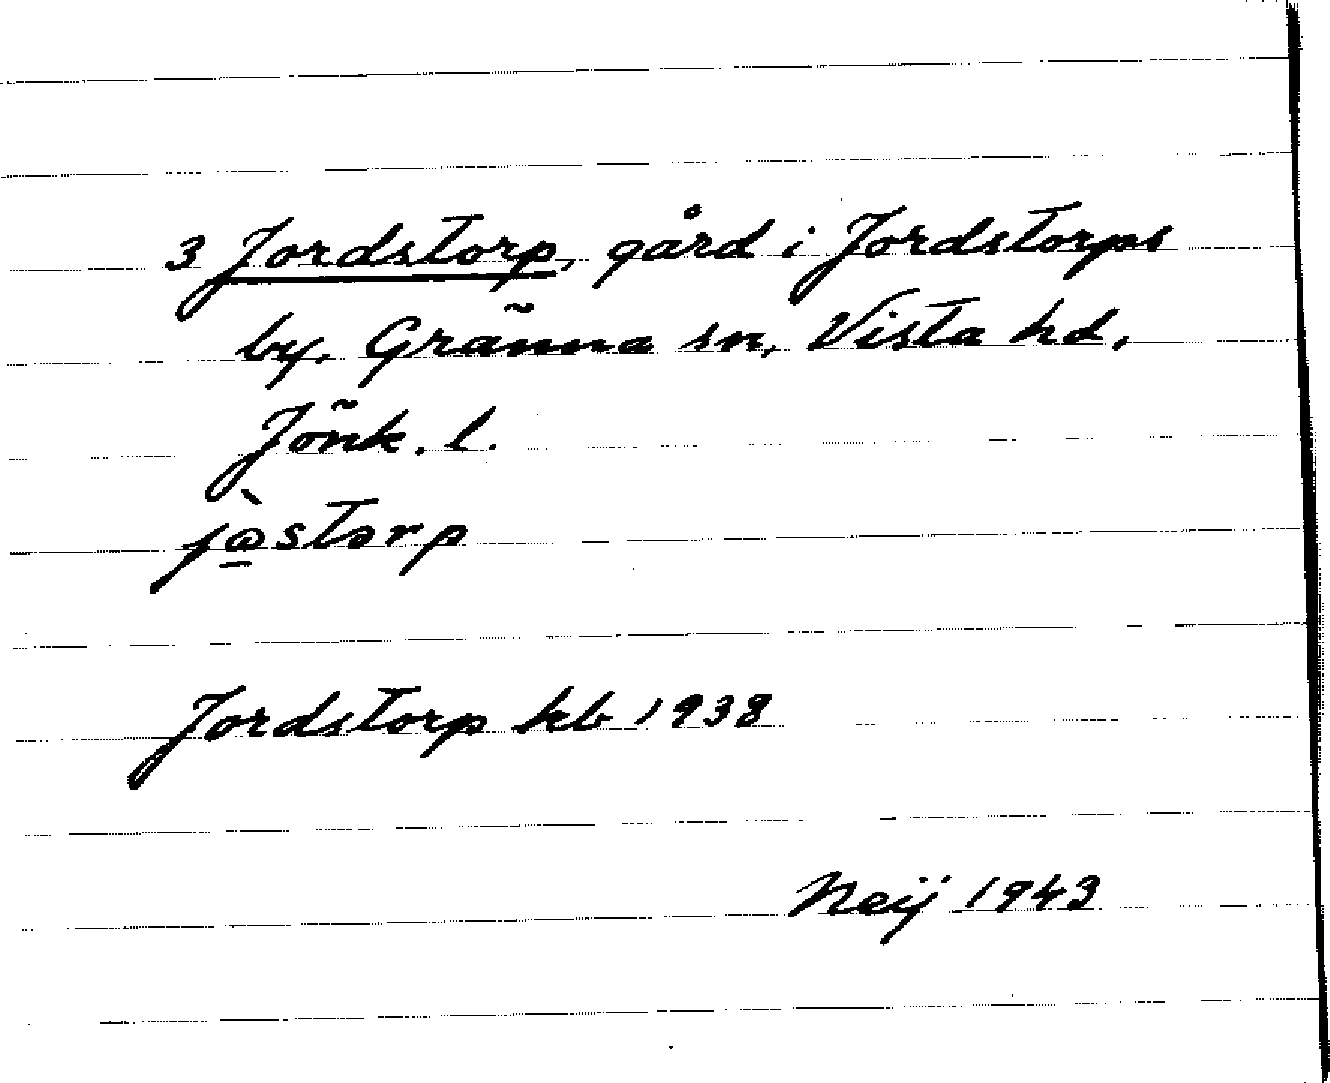 3 Jordstorp, gård i Jordstorps
by, Gränna sn, Vista hd,
Jönk. l.
Jordstorp kb 1938
Neij 1943